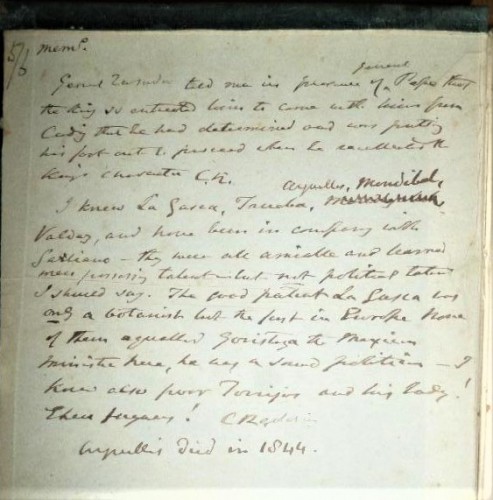 5/6 mem.
General
General told me in presence of ^ Pepe that
the King so entreated him to come with him from
Cadiz that he had determined and was putting
his foot out to proceed when he recollected the
King's character C.R.
Arguelles, Mendibal,
I knew La Gasca, Trueba,
Valdez, and have been in company with
Galiano - they were all amiable and learned
men possessing talent but not political talent
I should say. The good patriot La Gasca was
only a botanist but the first in Europe None
of them equalled Gorostiza the Mexican
minister here, he was a sound politician - I
knew also poor Torrijos and his lady!
C R
Arguellis died in 1844.